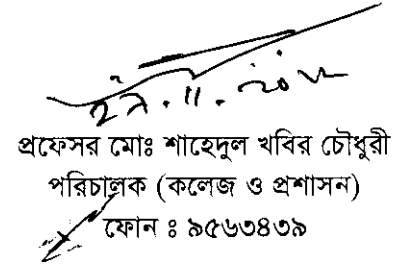 প্রফেসর মোঃ শাহেদুল খবির চৌধুরী
পরিচালক (কলেজ ও প্রশাসন)
ফোন ঃ ৯৫৬৩৪৩৯